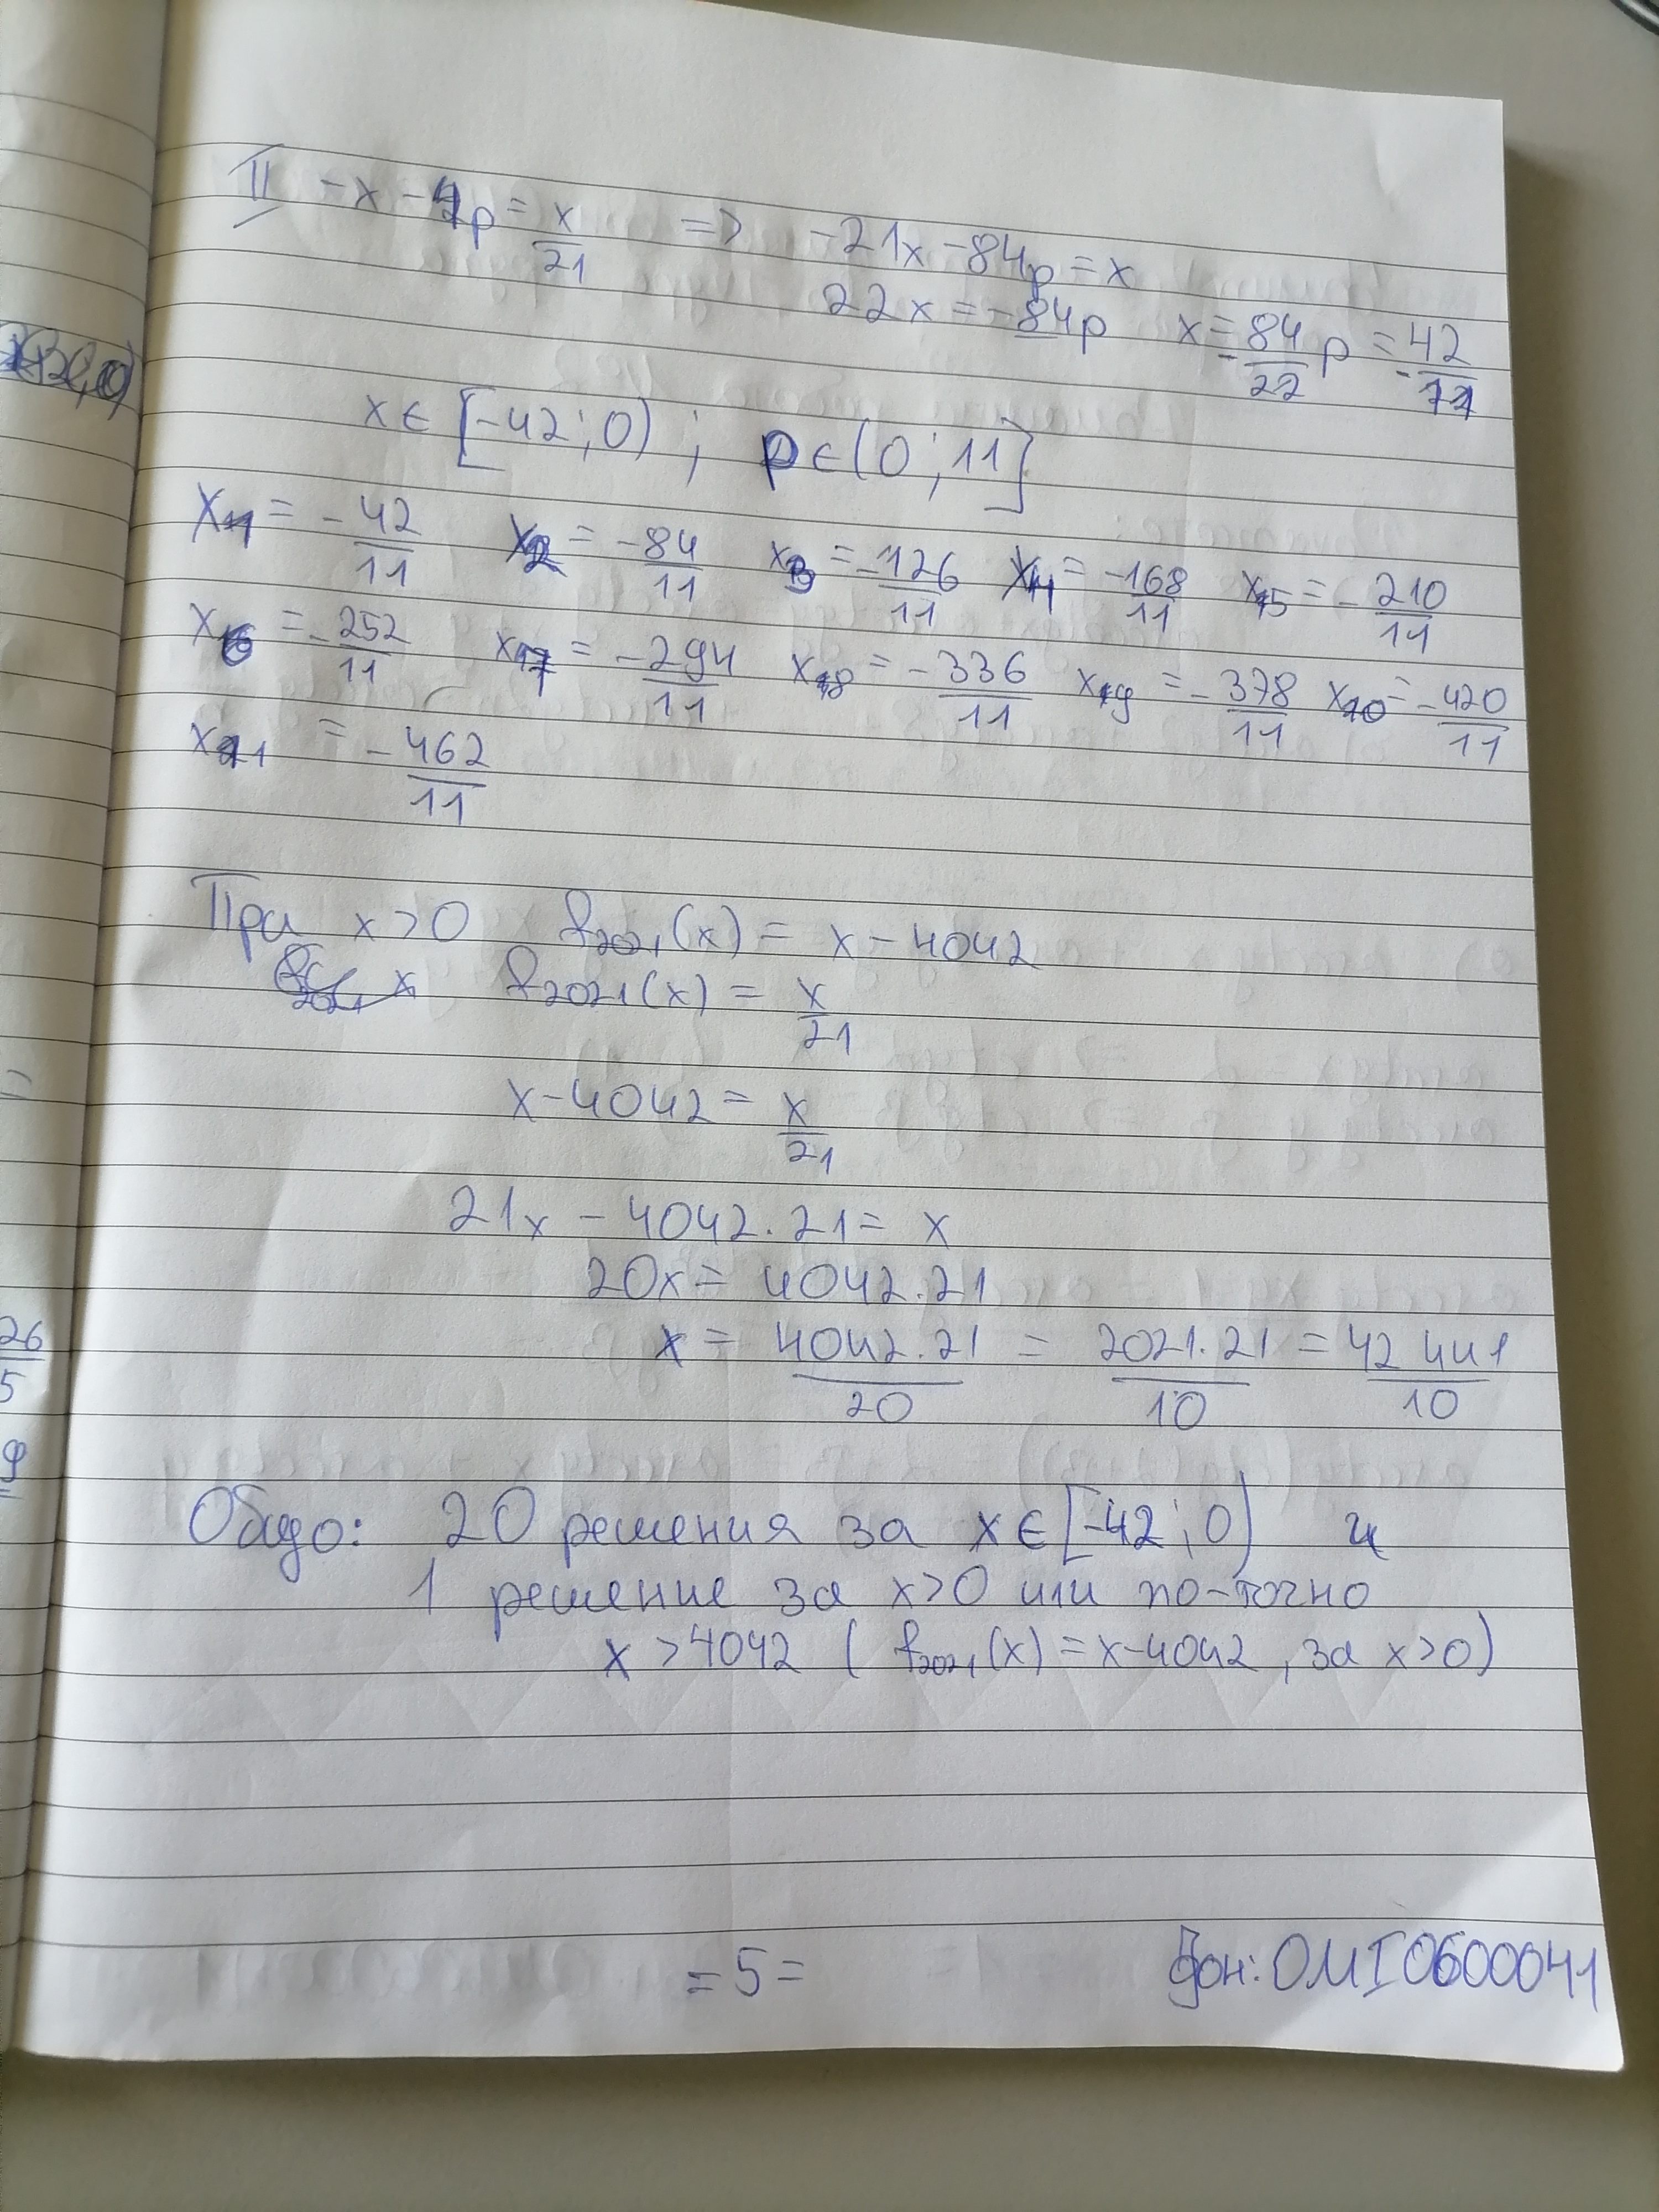 II -x - 4p = x/21 => -21x - 84p = x
22x = -84p x = -84/22 p = -42/11
x ∈ [-42; 0) ; p ∈ (0; 11]
x₁ = -42/11 x₂ = -84/11 x₃ = -126/11 x₄ = -168/11 x₅ = -210/11
x₆ = -252/11 x₇ = -294/11 x₈ = -336/11 x₉ = -378/11 x₁₀ = -420/11
x₁₁ = -462/11
При x > 0 f₂₀₂₁(x) = x - 4042
f₂₀₂₁(x) = x/21
x - 4042 = x/21
21x - 4042.21 = x
20x = 4042.21
x = 4042.21/20 = 2021.21/10 = 42441/10
Общо: 20 решения за x ∈ [-42; 0) и
1 решение за x > 0 или по-точно
x > 4042 ( f₂₀₂₁(x) = x - 4042, за x > 0)
= 5 = фон: OMI0600041
26/5
9